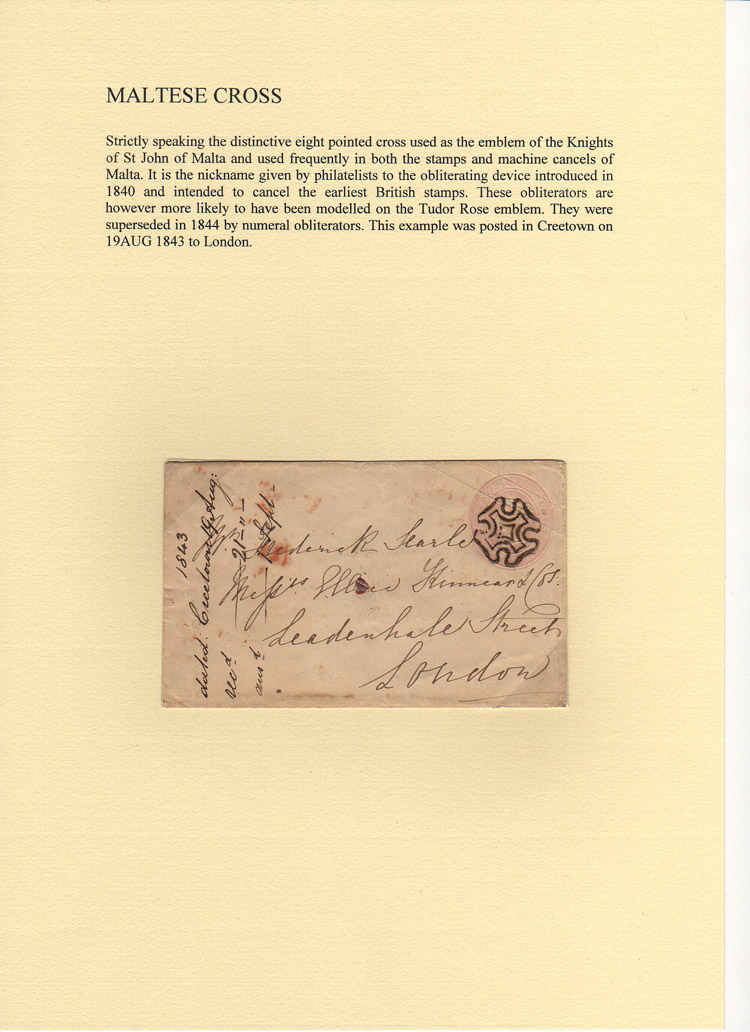 MALTESE CROSS
Strictly speaking the distinctive eight pointed cross used as the emblem of the Knights
of St John of Malta and used frequently in both the stamps and machine cancels of
Malta. It is the nickname given by philatelists to the obliterating device introduced in
1840 and intended to cancel the earliest British stamps. These obliterators are
however more likely to have been modelled on the Tudor Rose emblem. They were
superseded in 1844 by numeral obliterators. This example was posted in Creetown on
19AUG 1843 to London.
1843
dated: Creetown 19 Aug:
recd 21 - " -
ansd Sept -
Frederick Searle
Messrs Kinnear & Cos.
Leadenhale Street
London